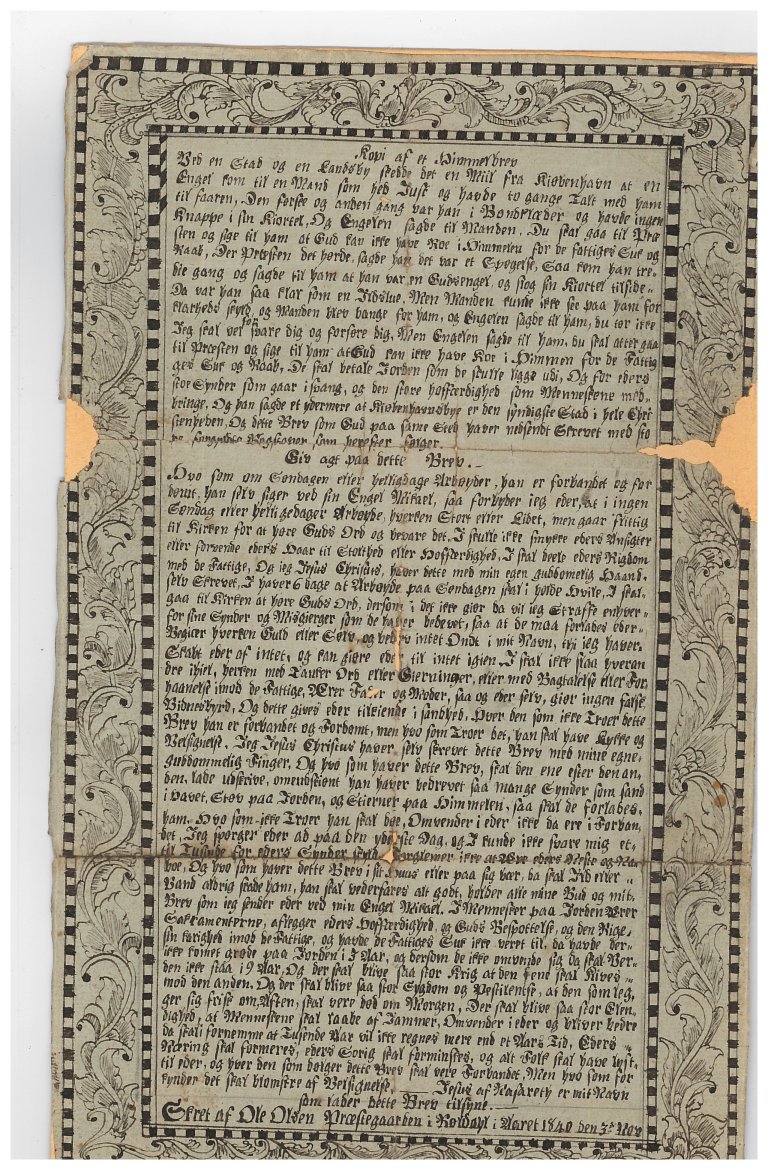 Kopi af et Himmelbrev
Ved en Stad og en Landsby skedde det en Miil fra Kiøbenhavn at en
Engel kom til en Mand som hed Just og havde to gange Talt med ham
til faaren, Den første og anden gang var han i Bondklæder og havde ingen
Knappe i sin Kiortel, Og Engelen sagde til Manden, Du skal gaa til Præ
sten og sige til ham at Gud kan ikke have Roe i Himmelen for de fattiges Suk og
Raab, Der Præsten det hørde, sagde han det var et Spøgelse, Saa kom han tre-
die gang og sagde til ham at han var en Gudsengel, og slog sin Kiortel tilside-
Da var han saa klar som en Ildslue, Men Manden kunde ikke see paa ham for
klarheds skyld, og Manden blev bange for ham, og Engelen sagde til ham, du tør ikke
Jeg skal vel forsvare dig og forføre dig, Men Engelen sagde til ham, du skal atter gaa
til Præsten og sige til ham at Gud kan ikke have Roe i Himmen for de Fattig
ges Suk og Raab, De skal betale Jorden som de skulle ligge udi, Og for eders
store Synder som gaar i svang, og den store hoffærdighed som Menneskene med-
bringe. Og han sagde et ydermere at Kiøbenhavnsbye er den syndigste Stad i hele Chri
stenheden, Og dette Brev som Gud paa same Sted haver nedsendt Skrevet med sto
re forgyldte Bogstaver som herefter følger.
Giv agt paa dette Brev.-
Hvo som om Søndagen eller helligdage Arbeyder, han er forbandet og for
dømt, han selv siger ved sin Engel Mikael, saa forbyder ieg eder, at i ingen
Søndag eller helligedager Arbeyde, hverken Stort eller Lidet, men gaar flittig
til Kirken for at høre Guds Ord og bevare det. I skulle ikke smykke eders Ansigter
eller forvende eders Haar til Stolthed eller Hoffærdighed, I skal deele eders Rigdom
med de Fattige, Og ieg Jesus Christus, haver dette med min egen guddomelig Haand
selv Skrevet, I haver 6 dage at Arbeyde paa Søndagen skal i holde Hvile, I skal-
gaa til Kirken at høre Guds Ord, dersom i det ikke giør da vil ieg Straffe enhver-
for sine Synder og Misgierger som de haver bedrevet, saa at de maa forlades eder-
Begiær hverken Guld eller Sølv, og bedrev intet Ondt i mit Navn, thi ieg haver-
Skabt eder af intet, og kan giøre eder til intet igien. I skal ikke slaa hveran
dre ihiel, herken med Tanker Ord eller Gierninger, eller med Bagtalelse eller For
haanelse imod de Fattige, Ærer Fader og Moder, saa og eder selv, giør ingen falsk
Vidnesbyrd, Og dette gives eder tilkiende i sandhed, Hver den som ikke Troer dette
Brev han er forbandet og Fordømt, men hvo som Troer det, han skal have Lykke og
Velsignelse. Jeg Jesus Christus haver selv skrevet dette Brev med mine egne-
guddommelig Finger, Og hvo som haver dette Brev, skal den ene efter den an-
den, lade udskrive, omendskiønt han haver bedrevet saa mange Synder som sand
i Havet, Støv paa Jorden, og Stierner paa Himmelen, saa skal de forlades-
ham. Hvo som ikke Troer han skal døe, Omvender i eder ikke da ere i Forban
det, Jeg spørger eder ad paa den yderste Dag, og I kunde ikke svare mig et-
til Tusinde for eders Synder skyld, Forglemer ikke at Ære eders Neste og Na-
boe, Og hvo som haver dette Brev i sit Huus eller paa sig bær, da skal Ild eller
Vand aldrig skade ham, han skal vederfares alt godt, holder alle mine Bud og mit
Brev som ieg sender eder ved min Engel Mikael. I Mennesker paa Jorden Ærer
Sakramenterne, aflegger eders Hoffærdighed, og Guds Bespottelse, og den Rige-
sin karighed imod de Fattige, og havde de Fattiges Suk ikke været til, da havde der-
ikke komet grøde paa Jorden i 3 Aar, og dersom de ikke omvende sig da skal Ver-
den ikke staa i 9 Aar, Og der skal blive saa stor Krig at den ene skal Kives
mod den anden, Og der skal blive saa stor Sygdom og Pestilentse, at den som leg-
ger sig frisk om Aften, skal vere død om Morgen, Der skal blive saa stor Elen-
dighed, at Menneskene skal raabe af Jammer, Omvender i eder og bliver bedre
da skal i fornemme at Tusende Aar vil ikke regnes mere end et Aars Tid, Eders
Næring skal formeres, eders Sorig skal forminskes, og alt Folk skal have lyst
til eder, og hver den som dølger dette Brev skal vere Forbandet, Men hvo som for
kynder det skal blomstre af Velsignelse. Jesus af Nasareth er mit Navn
som lader dette Brev tilsyne.
Skret af Ole Olsen Præstegaarden i Røldahl i Aaret 1840 den 3d Nov